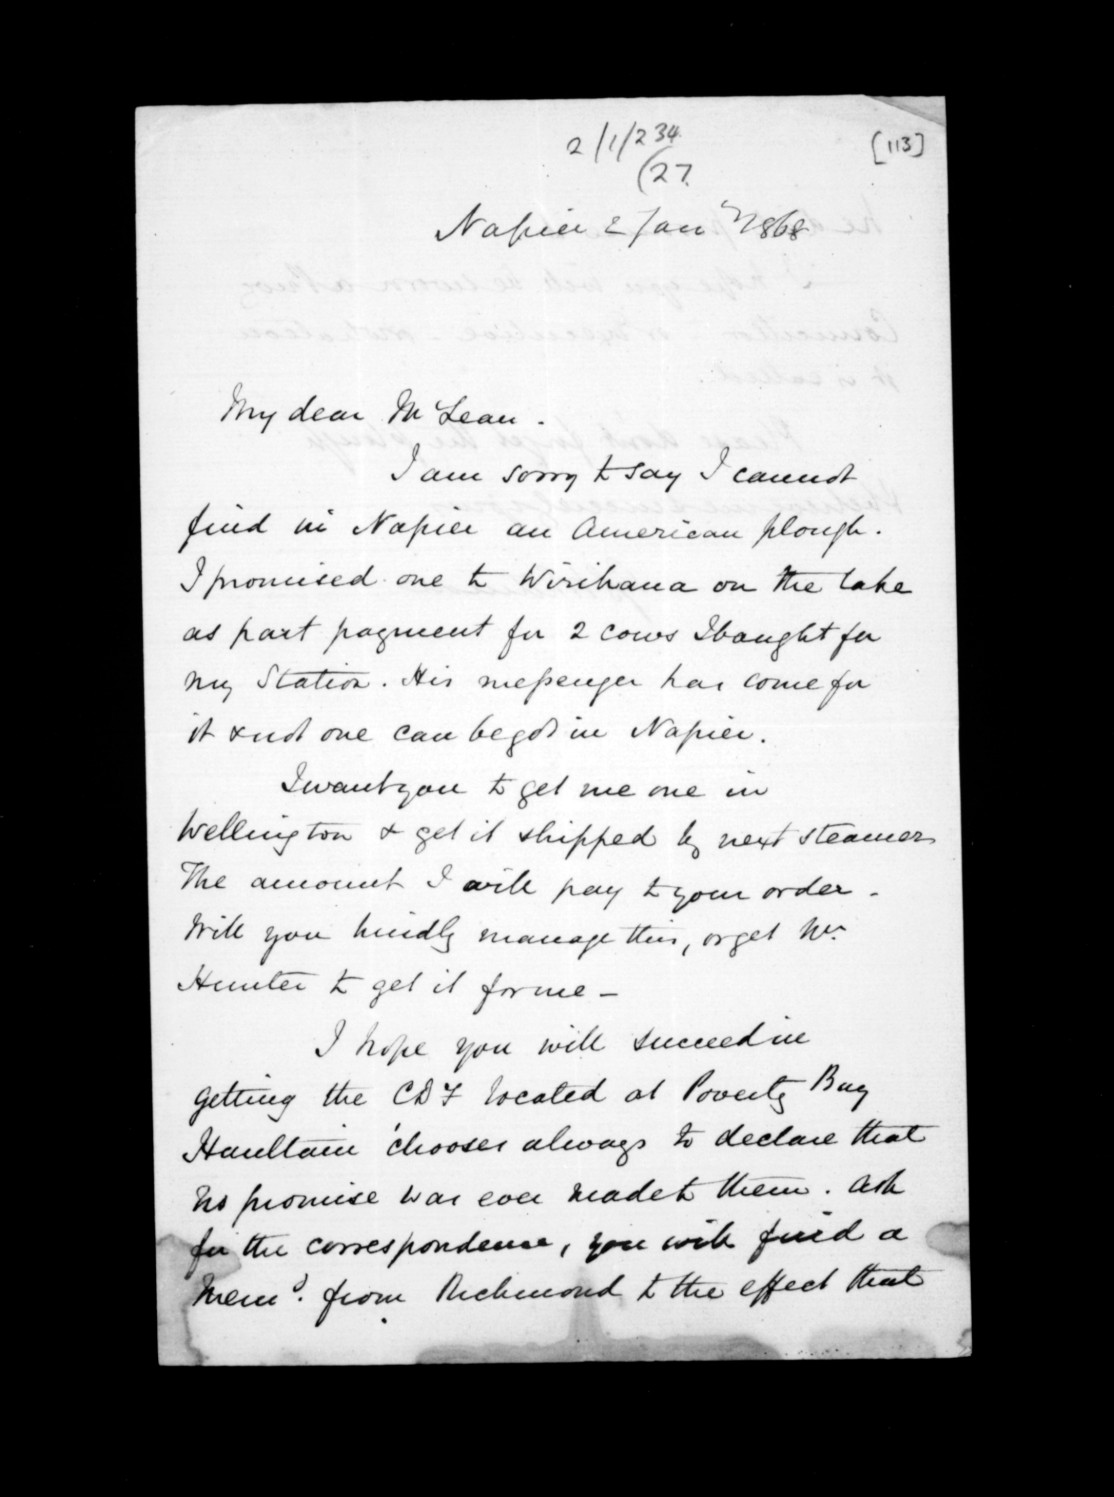 2/1/2 34.
(27.
[113]
Napier 2 Jany 1868
My dear McLean.
I am sorry to say I cannot
find in Napier an American plough.
I promised one to Wirihana on the lake
as part payment for 2 cows I bought for
my Station. His messenger has come for
it & not one can be got in Napier.
I want you to get me one in
Wellington & get it shipped by next steamer
The amount I will pay to your order -
Will you kindly manage this, or get Mr.
Hunter to get it for me -
I hope you will succeed in
getting the CDF located at Poverty Bay
Haultain chooses always to declare that
no promise was ever made to them. Ask
for the correspondence, you will find a
Memo. from Richmond to the effect that